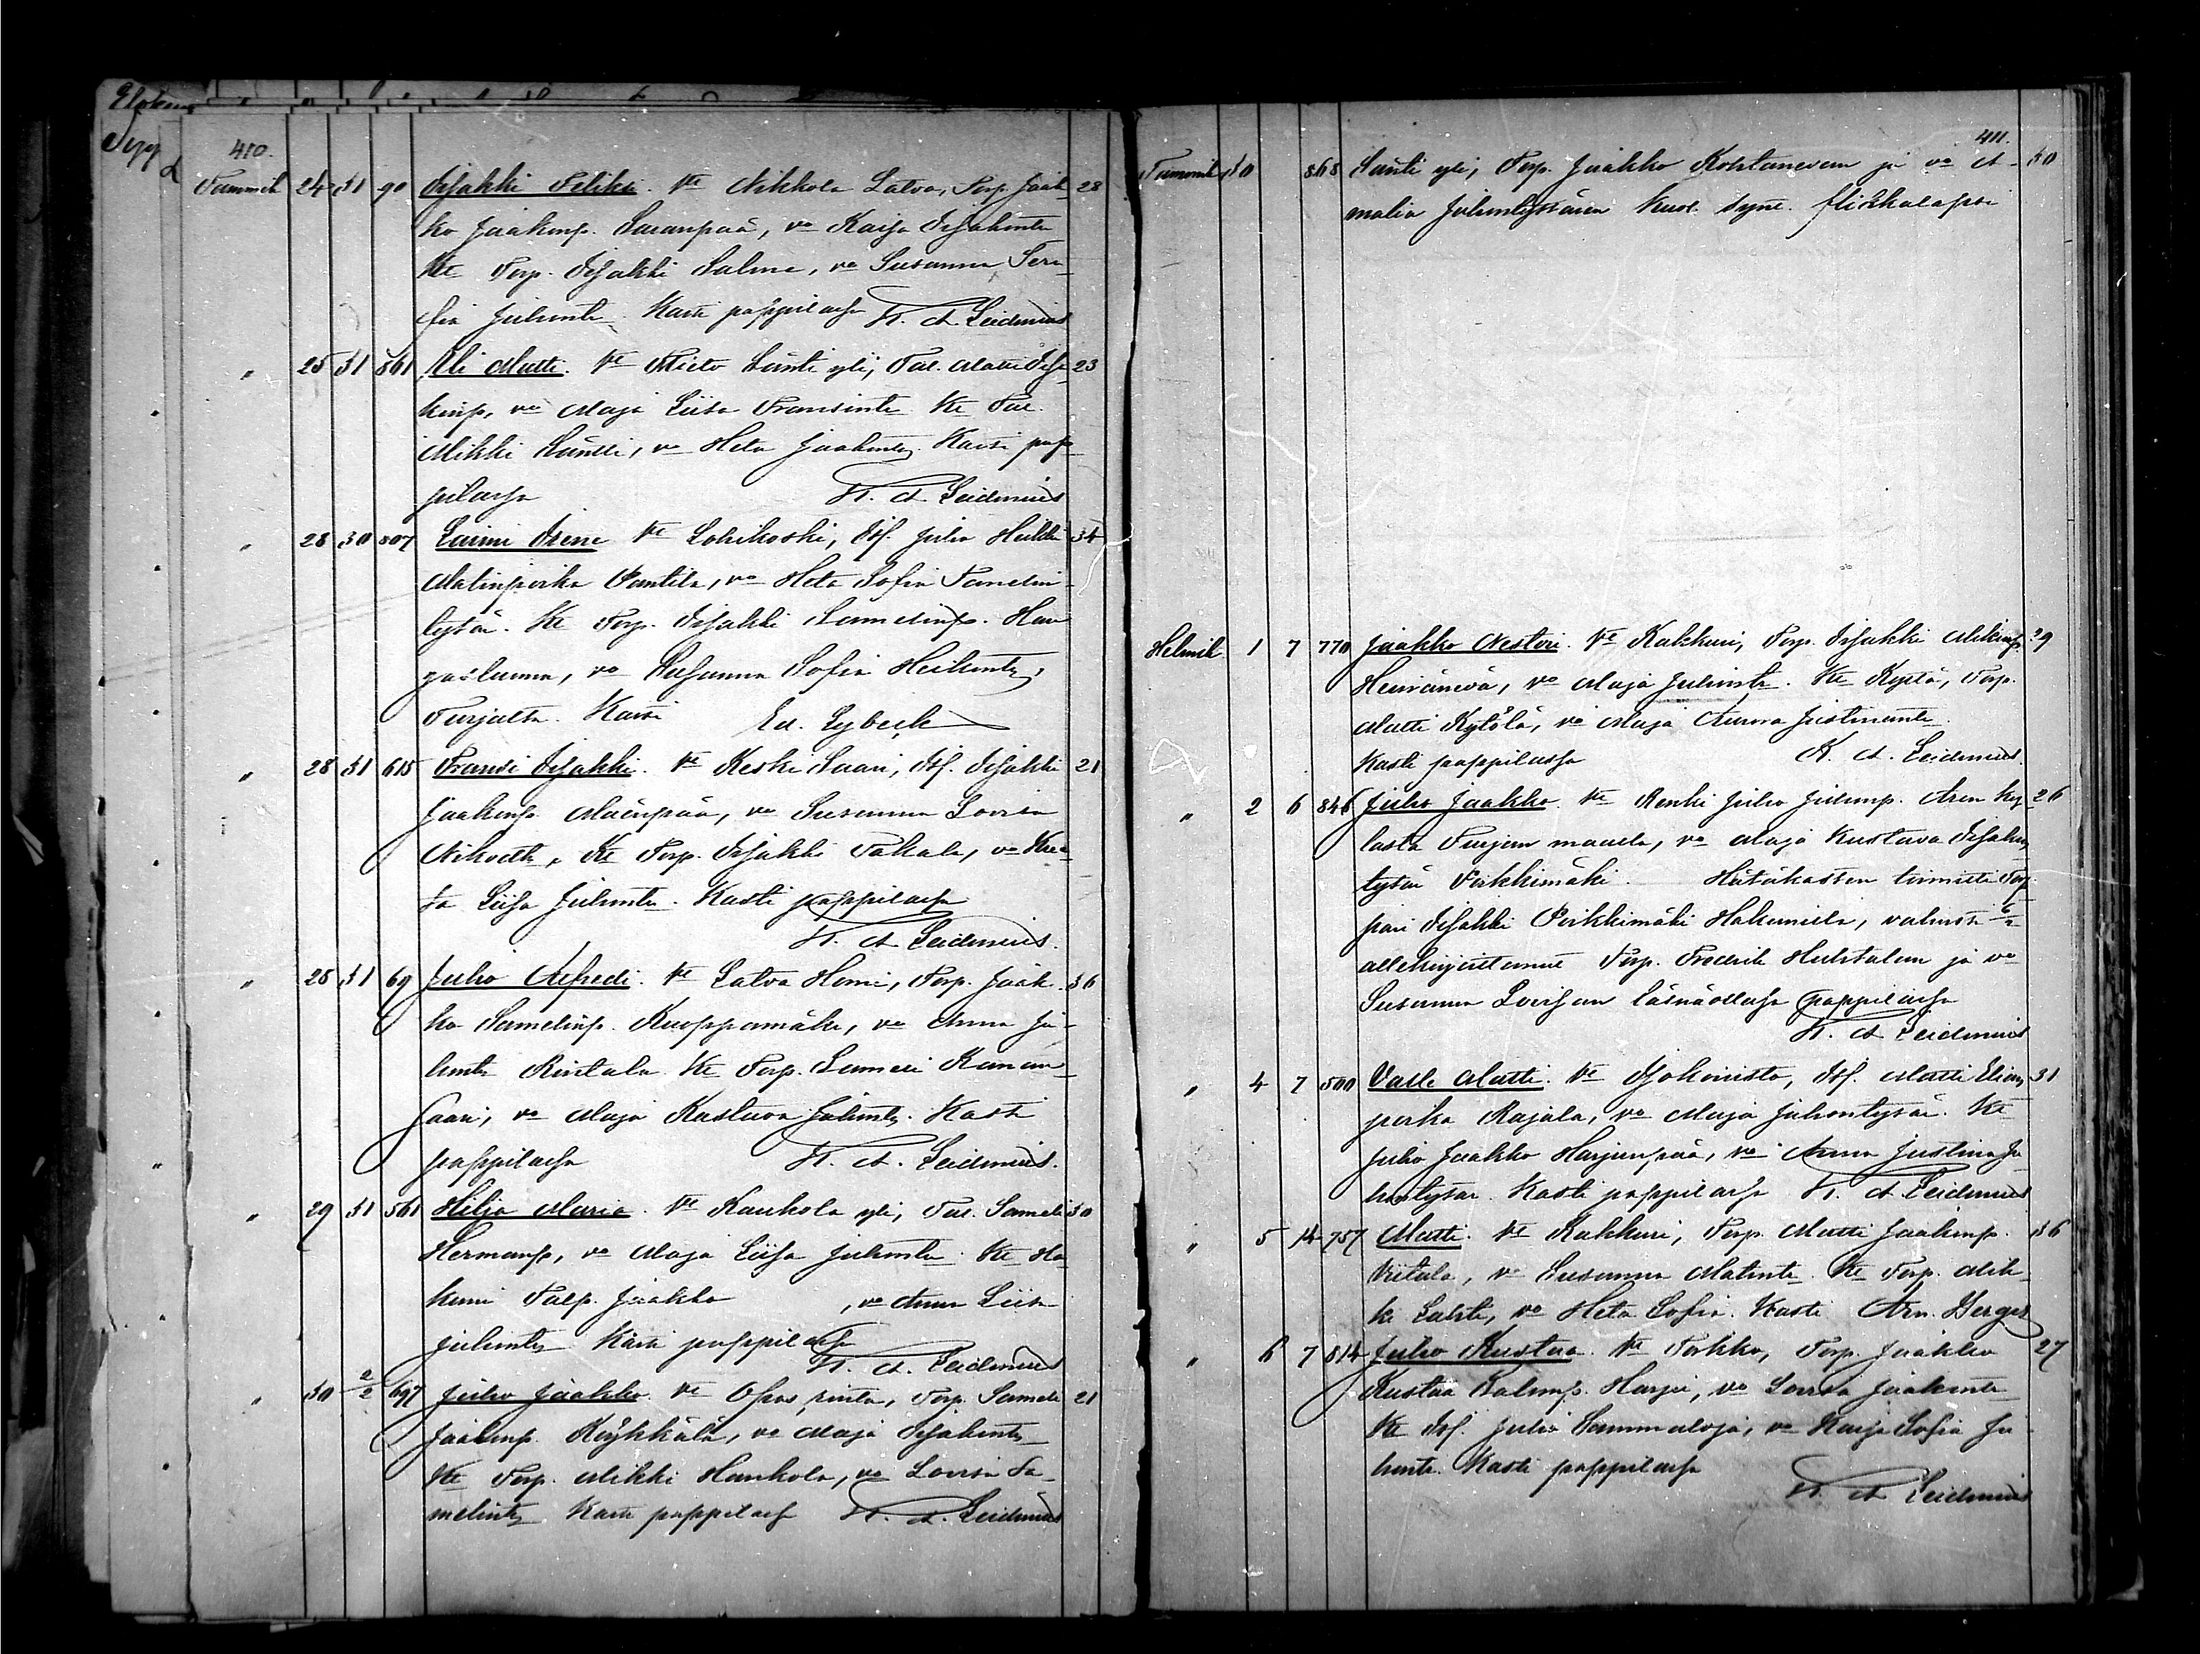 410.
Tammik 24 31 90 Iisakki Feliksi. Vt Nikkola Latva, Torp. Jaak- 28
ko Jaakonp. Saranpää, vo Kaisa Iisakintr
Kt Torp. Iisakki Salme, vo Susanna Sera-
fia Juhontr. Kasti pappilassa K. A. Leidenius
" 25 31 861 Eli Matti. Vt Mieto Länti yli, Tal. Matti Iisa- 23
kinp, vo Maja Liisa Fransintr. Kt Tal.
Mikki Läntti, vo Heta Jaakontr. Kasti pap-
pilassa K. A. Leidenius
" 28 30 807 Laimi Irene Vt Lohikoski, Itf. Juho Heikki 34
Matinpoika Panttila, vo Heta Sofia Samelin-
tytär. Kt Torp. Iisakki Samelinp. Han
gasluoma, vo Susanna Sofia Heikintr,
Turjalta. Kasti Ed. Lybeck
" 28 31 615 Fransi Iisakki. Vt Keski Saari, Itf. Iisakki 21
Jaakonp Mäenpää, vo Susanna Lovisa
Nikodtr, Kt Torp. Iisakki Takala, vo Kree-
ta Liisa Juhontr. Kasti pappilassa
K. A. Leidenius.
" 28 31 69 Juho Alfredi. Vt Latva Homi, Torp. Jaak- 36
ko Samelinp. Kuoppamäki, vo Anna Ju-
hontr Rintala Kt Torp. Sameli Kanan-
saari, vo Maja Kustava Juhontr. Kasti
pappilassa K. A. Leidenius.
" 29 31 561 Hilja Maria. Vt Kauhola yli, Tal. Sameli 30
Hermanp, vo Maja Liisa Juhontr. Kt Ha
kuni Talp. Jaakko , vo Anna Liisa
Juhontr Kasti pappilassa
K. A. Leidenius
" 30 2/2 697 Juho Jaakko. Vt Opas rinta, Torp. Sameli 21
Jaakonp. Röykkälä, vo Maja Iisakintr
Kt Torp. Mikki Hankola, vo Lovisa Sa-
melintr Kasti pappilassa K. A. Leidenius
411.
Tammik 30 868 Länti yli, Torp. Jaakko Kohtanevan ja vo A- 30
malia Juhontyttären kuol. synt. flikkalapsi
Helmik. 1 7 770 Jaakko Nestori. Vt Kakkuri, Torp. Iisakki Mikinp. 29
Heinäneva, vo Maja Juhontr. Kt Kyttä, Torp.
Matti Kytölä, vo Maja Aurora Justinantr.
Kasti pappilassa K. A. Leidenius.
" 2 6 846 Juho Jaakko Vt Renki Juho Juhonp. Aron ky- 26
lästä Turjan maalla, vo Maja Kustava Iisakin
tytär Pirkkimäki. Hätäkasten toimitti Torp-
pari Iisakki Pirkkimäki Hakunista, vahvisti 6/2
allekirjoittanut Torp. Fredrik Huhtalan ja vo
Susanna Lovisan läsnäollessa pappilassa
K. A. Leidenius
" 4 7 500 Valle Matti. Vt Ojokoisto, Itf. Matti Elian- 31
poika Rajala, vo Maja Juhontytär. Kt
Juho Jaakko Harjunpää, vo Anna Justina Ju-
hontytär. Kasti pappilassa K. A. Leidenius
" 5 14 757 Matti. Vt Kakkuri, Torp. Matti Jaakonp. 36
Viitala, vo Susanna Matintr. Kt Torp. Mik-
ki Lahti, vo Heta Sofia. Kasti Arn. Bergroth
" 6 7 814 Juho Kustaa. Vt Torkko, Torp. Jaakko 27
Kustaa Kalenp. Harju, vo Lovisa Jaakontr
Kt Itf. Juho Sammaloja, vo Kaisa Sofia Ju-
hontr. Kasti pappilassa
K. A. Leidenius